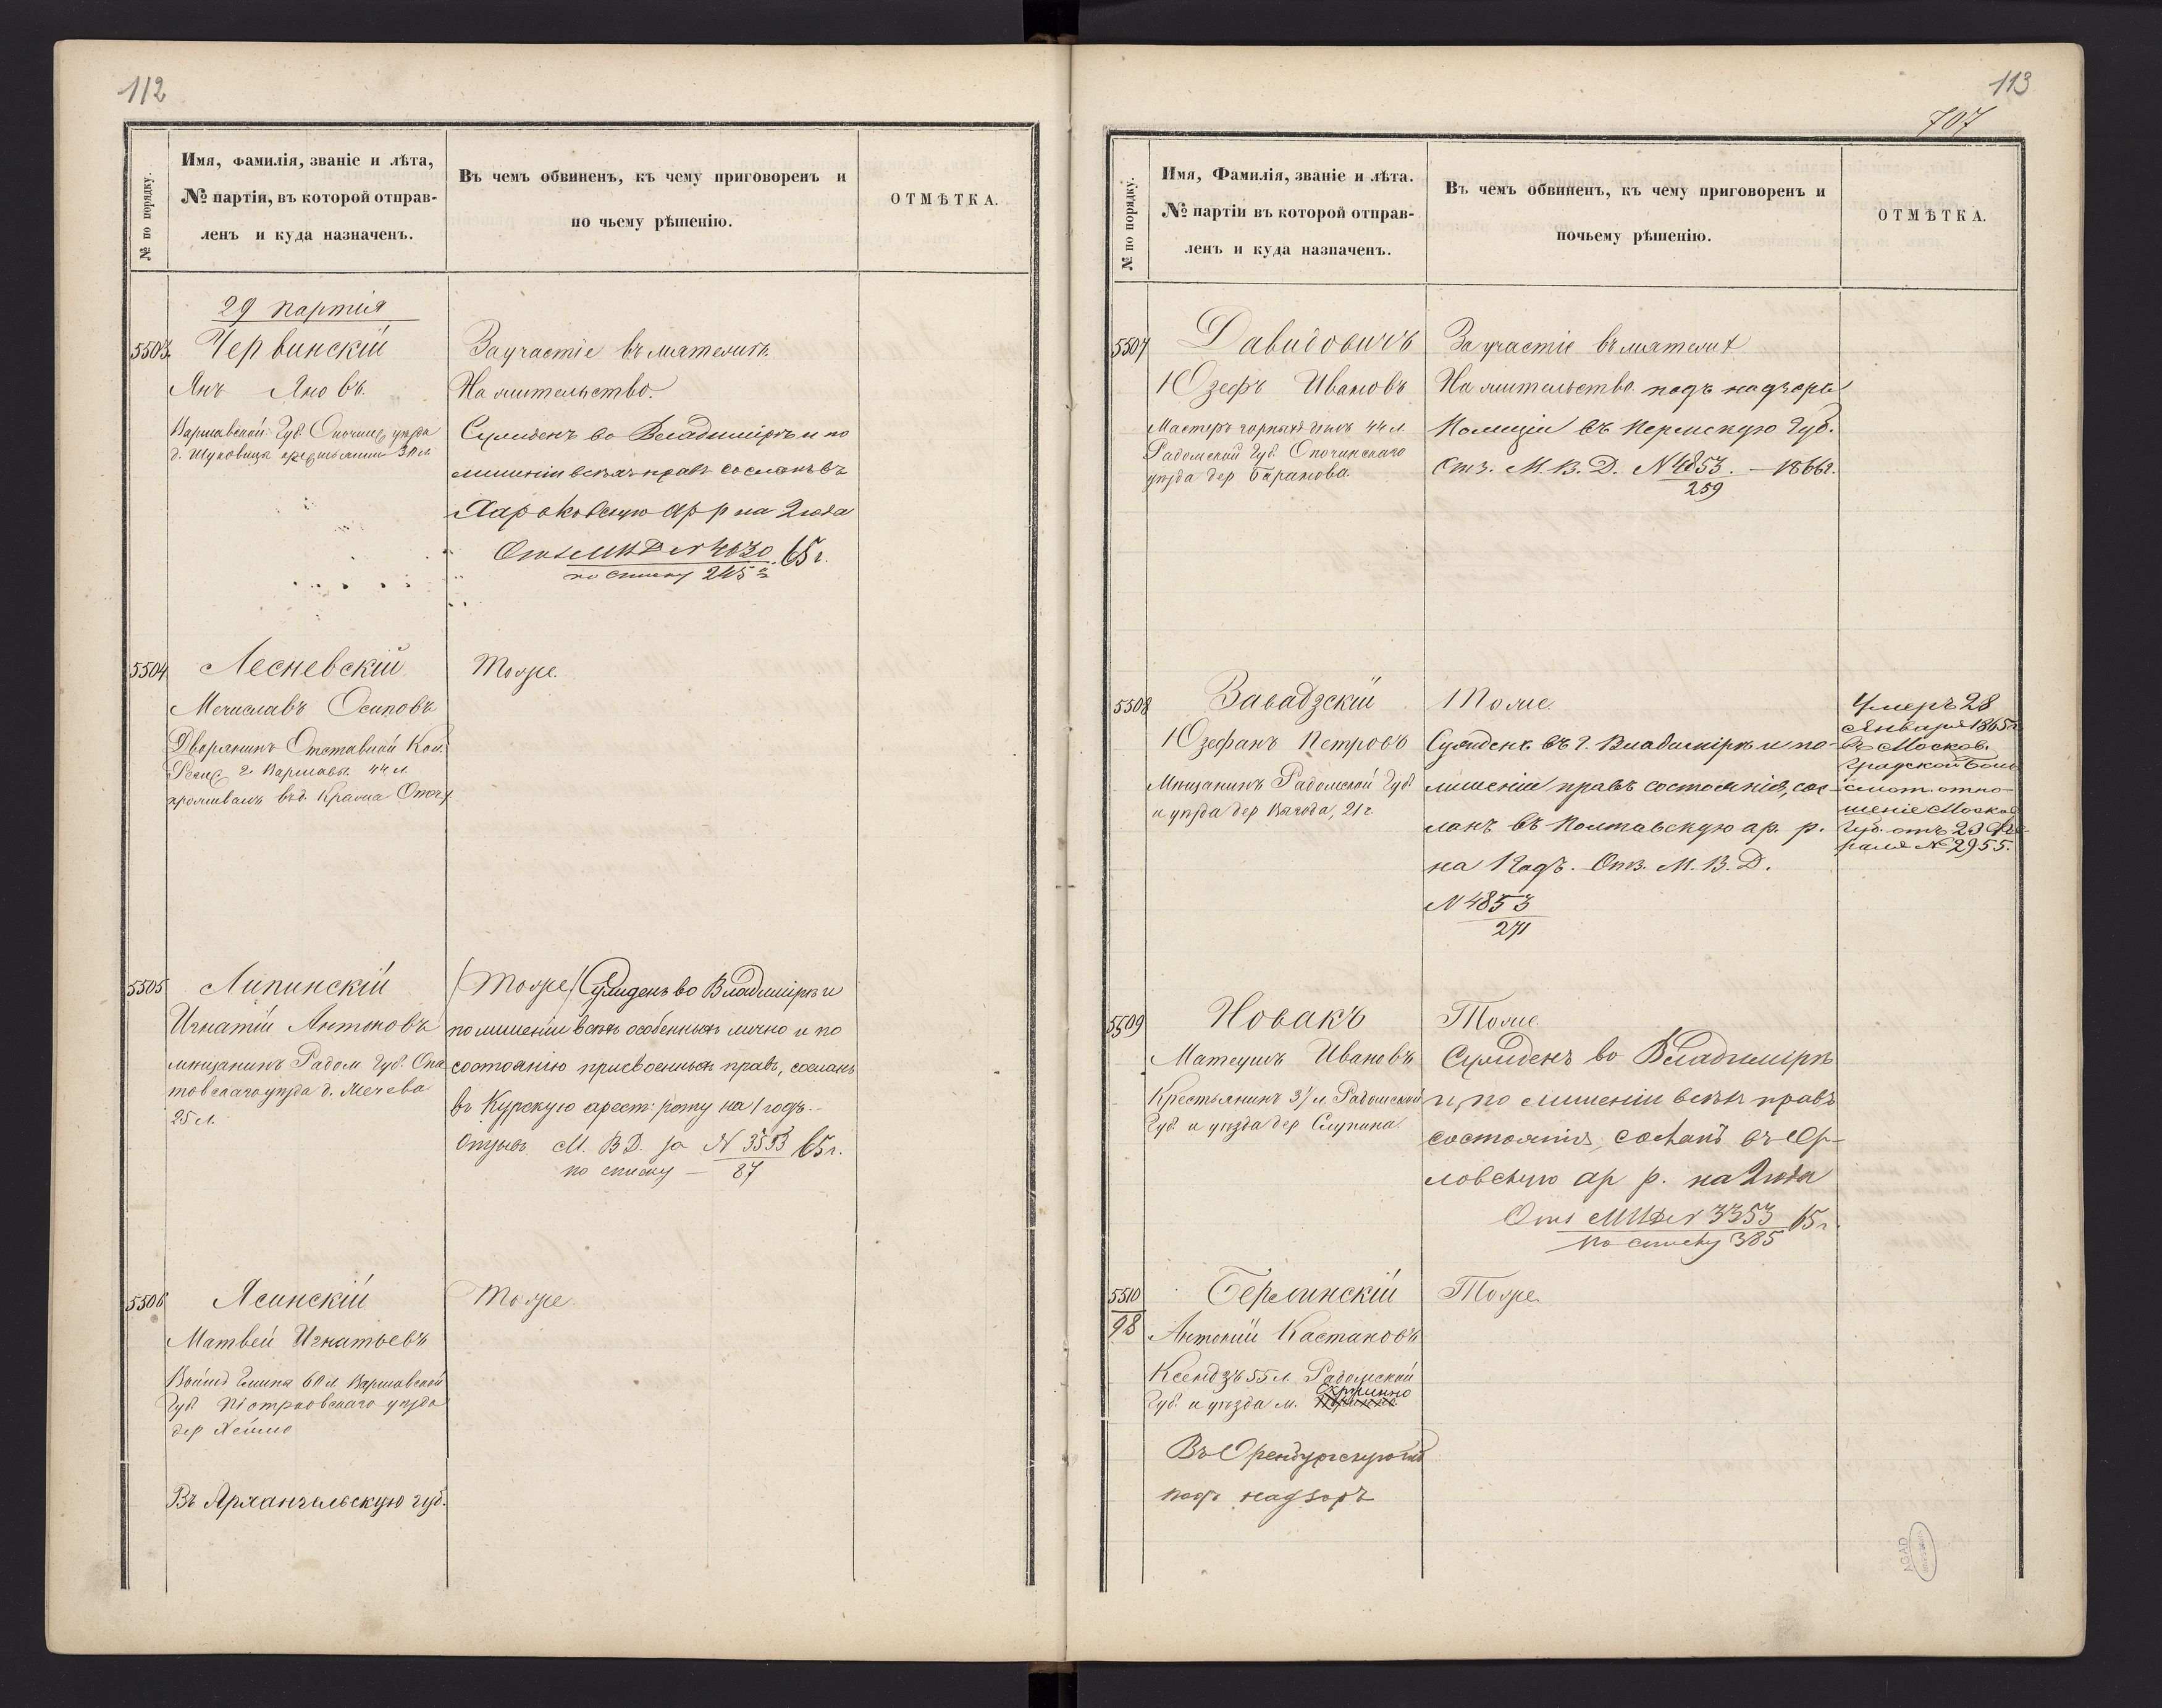 112
№ по порядку.
Имя, фамилія, званіе и лѣта,
№ партіи, въ которой отправ-
ленъ и куда назначенъ.
Въ чемъ обвиненъ, къ чему приговоренъ и
по чьему рѣшенію.
ОТМѢТКА.
29 партія
5503.
Червинскій
Янъ Яновъ.
Варшавской Губ. уѣзда
30 л.
За участіе въ мятежѣ.
На жительство.
Сужденъ во Владимірѣ и по
лишеніи всѣхъ правъ сосланъ въ
ар р на 2 года
Отз МВД № 4630 65 г.
по списку 245
5504
Лесневскій
Мечиславъ Осиповъ
Дворянинъ Отставной Кол.
г. Варшавы 44 л
проживалъ въ д.
Тоже.
5505
Липинскій
Игнатій Антоновъ
мѣщанинъ Радом. Губ. Опа
товскаго уѣзда д. Мечева
25 л.
(Тоже) Сужденъ во Владимірѣ и
по лишеніи всѣхъ особенныхъ лично и по
состоянію присвоенныхъ правъ, сосланъ
въ Курскую арест: роту на 1 годъ.
Отзывъ М. В Д. за № 3553 65 г.
по списку — 87
5506
Ясинскій
Матвей Игнатьевъ
Войтъ Гмины 60 л. Варшавской
Губ. Піотрковскаго уѣзда
дер
Въ Архангельскую губ.
Тоже
113
707
№ по порядку.
Имя, Фамилія, званіе и лѣта.
№ партіи въ которой отправ-
ленъ и куда назначенъ.
Въ чемъ обвиненъ, къ чему приговоренъ и
почьему рѣшенію.
ОТМѢТКА.
5507
Давидовичъ
Юзефъ Ивановъ
Мастеръ горныхъ 44 л.
Радомской Губ. Опочинскаго
уѣзда дер Баранова.
За участіе въ мятежѣ
На жительство подъ надзоръ
Полиціи въ Пермскую Губ.
Отз. М. В. Д. № 4853. — 1866 г.
259
5508
Завадзскій
Юзефанъ Петровъ
Мѣщанинъ Радомской Губ.
и уѣзда дер 21 г.
Тоже.
Сужденъ въ г. Владимірѣ и по
лишеніи правъ состоянія, сос-
ланъ въ Полтавскую ар. р.
на 1 годъ. Отз. М. В. Д.
№ 4853
271
Умеръ 28
Января 1865 г
въ Москов.
Градской Боль
смот. отно-
шеніе Москов
Губ. отъ 23 Фев-
раля № 2955.
5509
Новакъ
Матеушъ Ивановъ
Крестьянинъ 31 л. Радомской
Губ. и уѣзда дер Слупица.
Тоже.
Сужденъ во Владимірѣ
и, по лишеніи всѣхъ правъ
состоянія, сосланъ въ Ор-
ловскую ар р. на 2 года
Отз МВД № 3353 65 г.
по списку 385
5510
98
Берлинскій
Антоній Кастановъ
Ксендзъ 55 л. Радомской
Губ. и уѣзда м.
Въ Оренбургскую губ
подъ надзоръ
Тоже.
AGAD